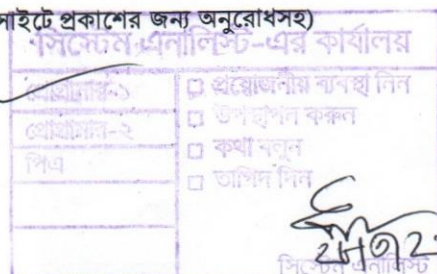 সাইটে প্রকাশের জন্য অনুরোধসহ)
সিস্টেম এনালিস্ট-এর কার্যালয়
প্রোগ্রামার-১
প্রোগ্রামার-২
পিএ
□ প্রয়োজনীয় ব্যবস্থা নিন
□ উপস্থাপন করুন
□ কথা বলুন
□ তাগিদ দিন
সিস্টেম এনালিস্ট